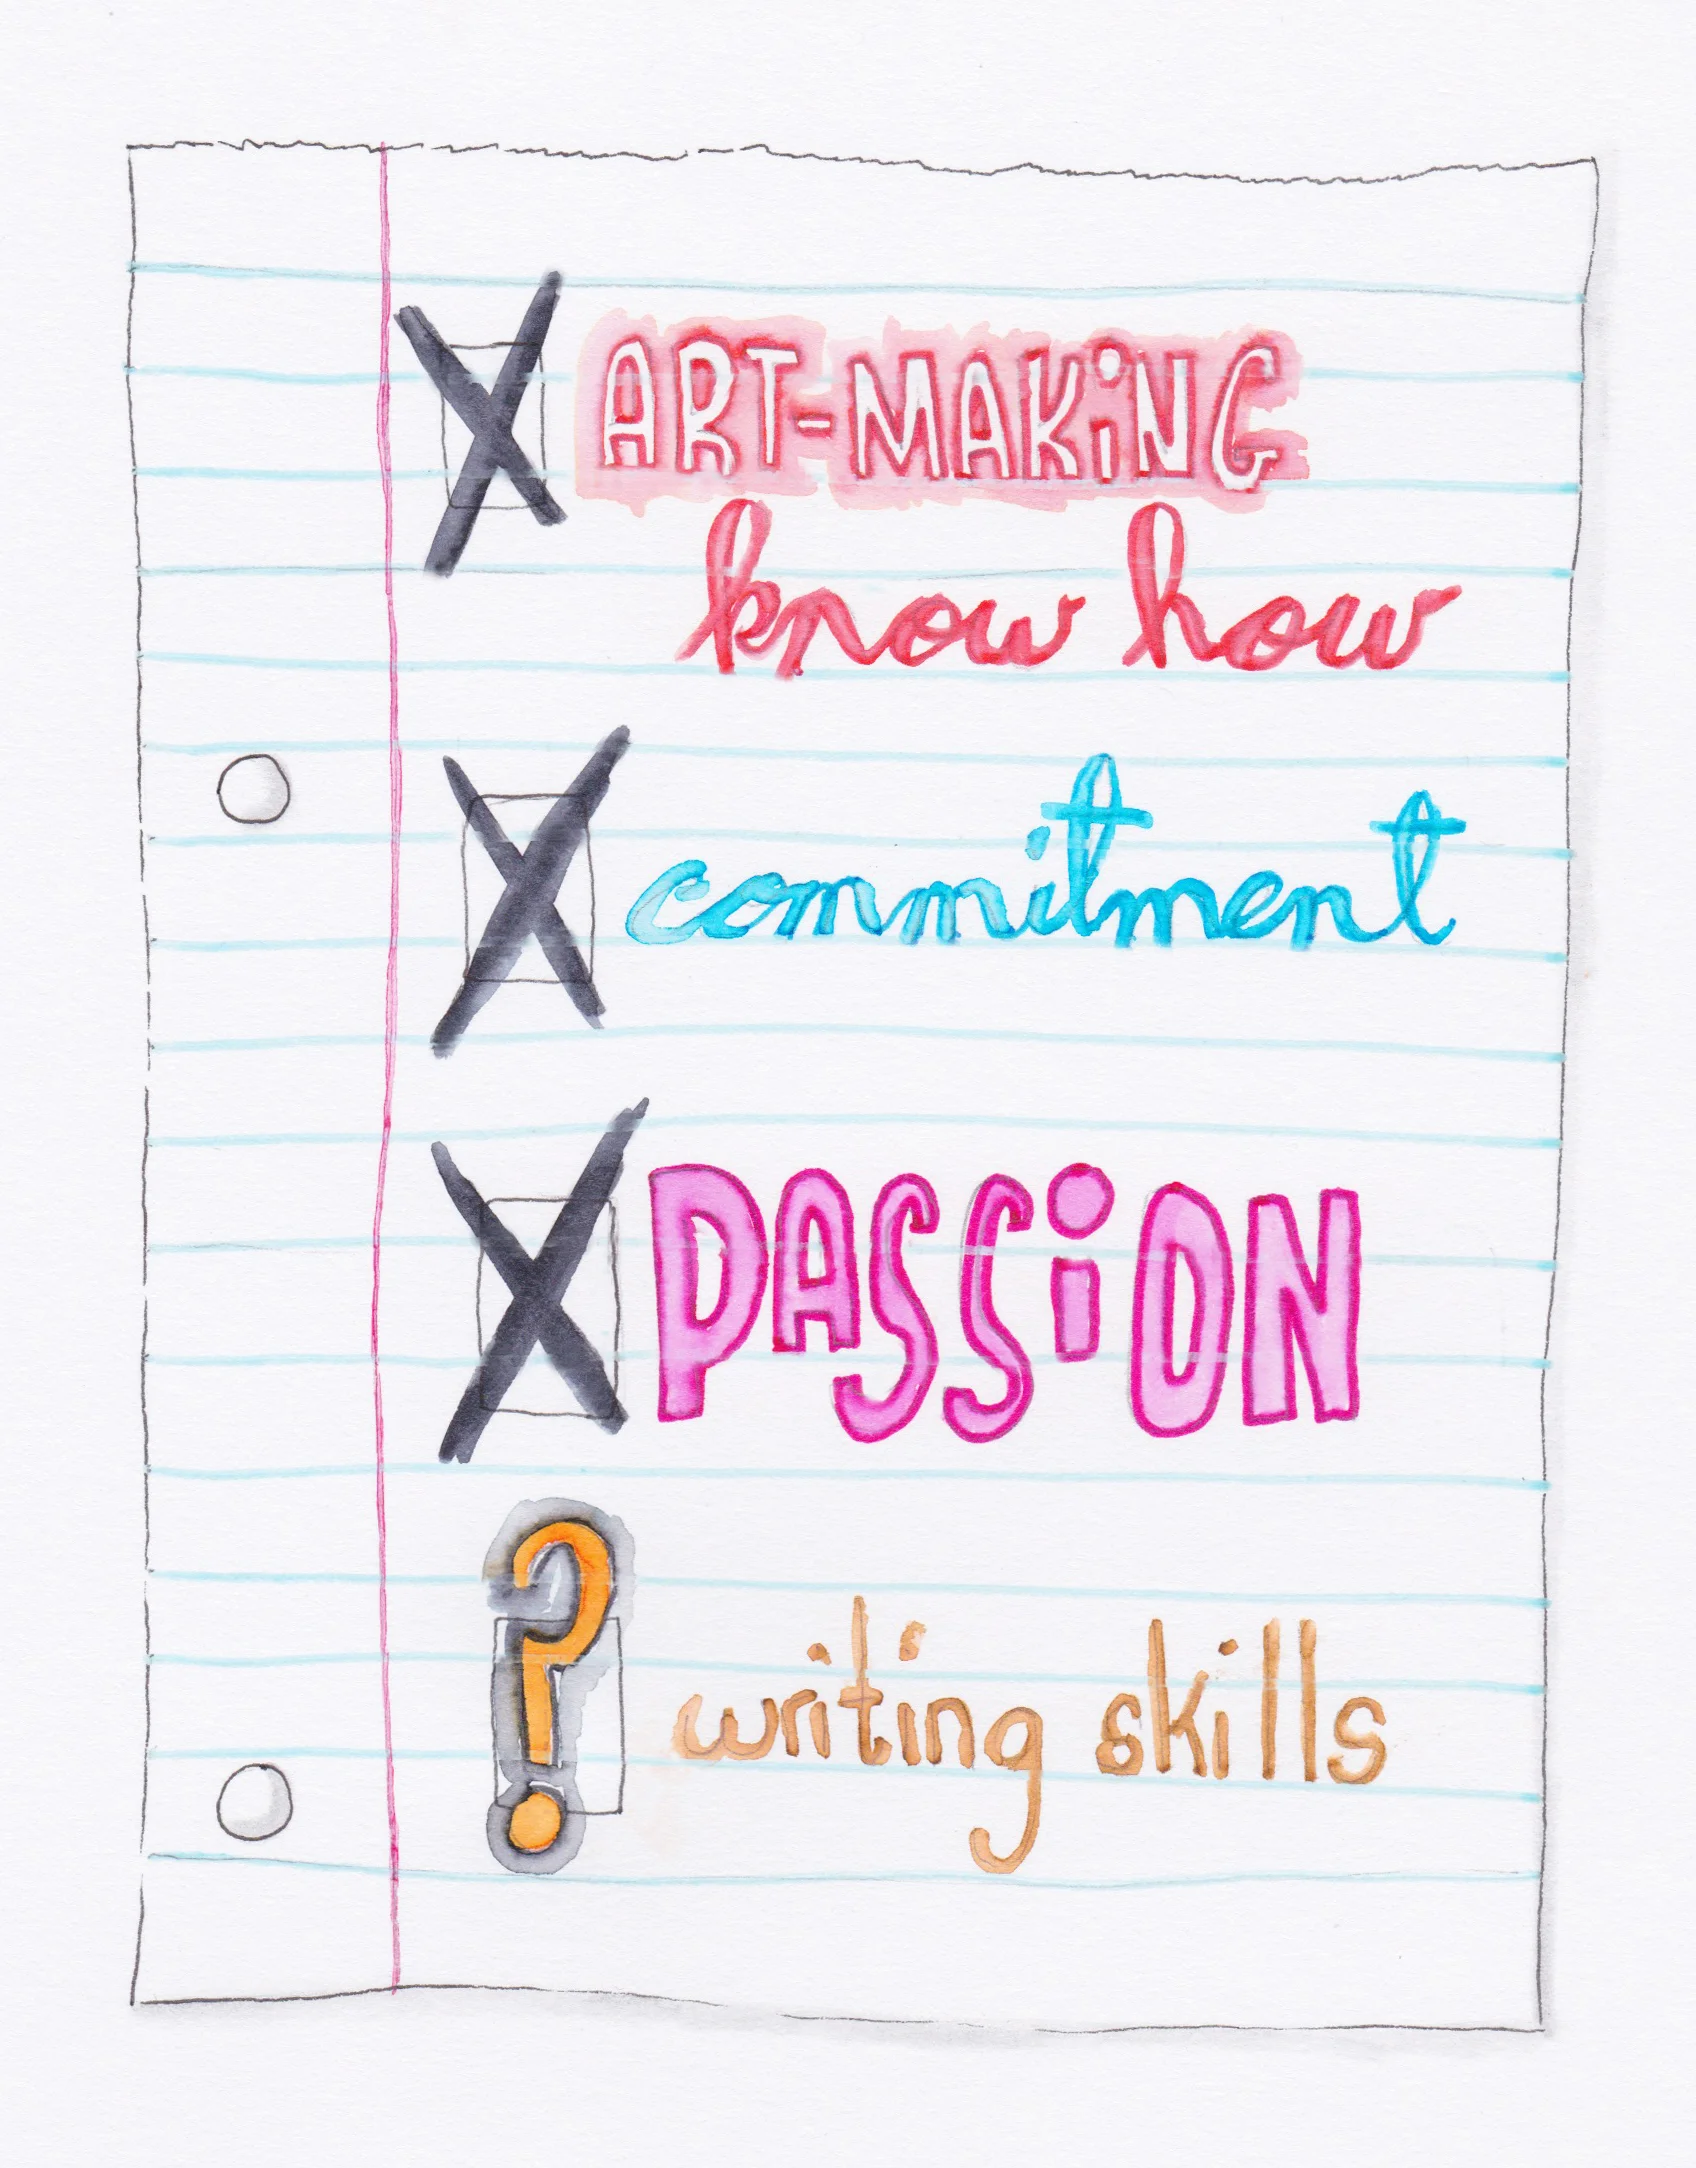 ART-MAKiNG
know how
commitment
PASSiON
? writing skills